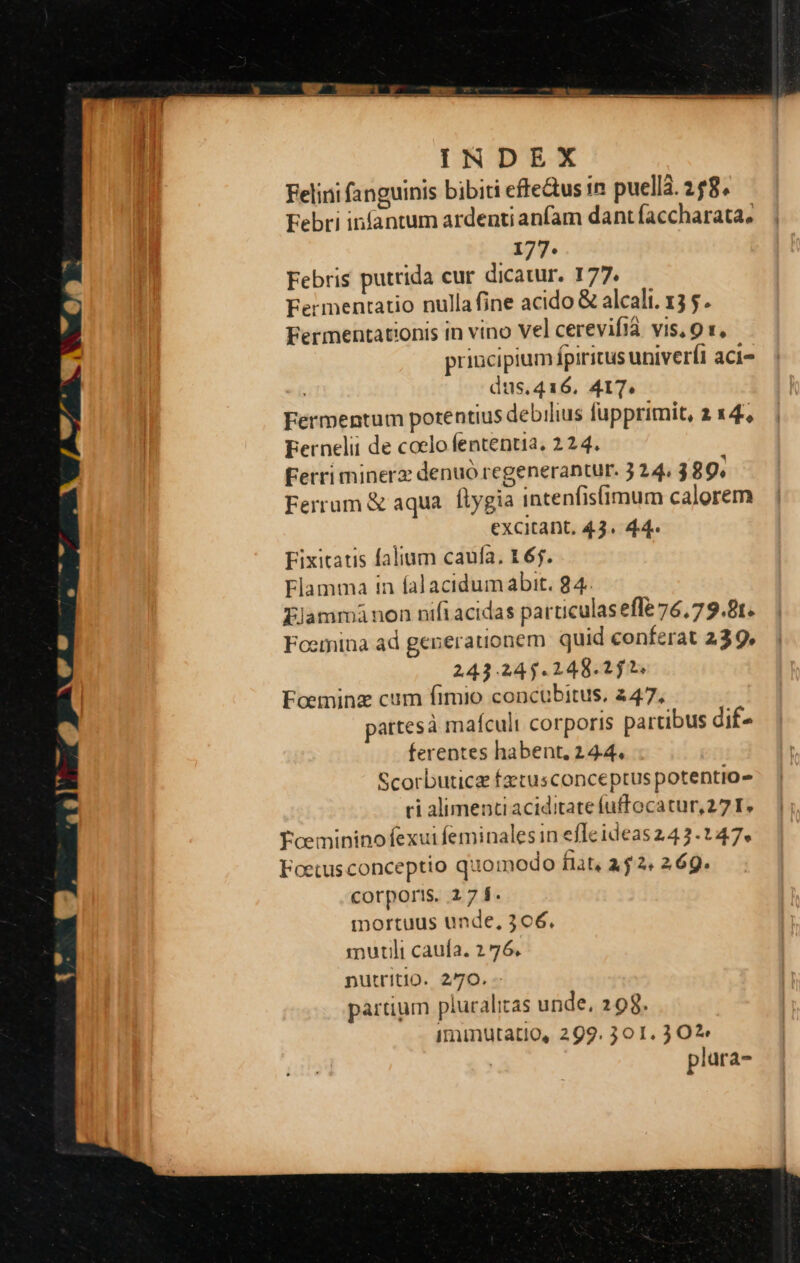 INDEX
Felini ſanguinis bibiti effectus in puellâ. 258.
Febri infantum ardenti anſam dant ſaccharata,
177.
Febris putrida cur dicatur. 177.
Fermentatio nulla ſine acido & alcali. 135.
Fermentationis in vino vel cereviſiâ vis, 91,
principium ſpiritus univerſi aci-
dus, 416, 417.
Fermentum potentius debilius ſupprimit, 214,
Fernelii de cœlo ſententia, 224.
Ferri mineræ denuò regenerantur. 324. 389.
Ferrum & aqua ſtygia intenſiſſimum calorem
excitant, 43. 44.
Fixitatis ſalium cauſa, 165.
Flamma in ſal acidum abit. 84.
Flammâ non niſi acidas particulas eſſe 76. 79. 81.
Fœmina ad generationem quid conferat 239.
243. 245. 248. 252.
Fœminæ cum ſimio concubitus, 247,
partes à maſculi corporis partibus dif-
ferentes habent, 244.
Scorbuticæ fætus conceptus potentio-
ri alimenti aciditate ſuffocatur, 271.
Fœminino ſexui ſeminales ineſſe ideas 243. 247.
Fœtus conceptio quomodo fiat, 252, 269.
corporis. 271.
mortuus unde, 306.
mutili cauſa. 276.
nutritio. 270.
partium pluralitas unde, 298.
immutatio, 299. 301. 302.
plura-